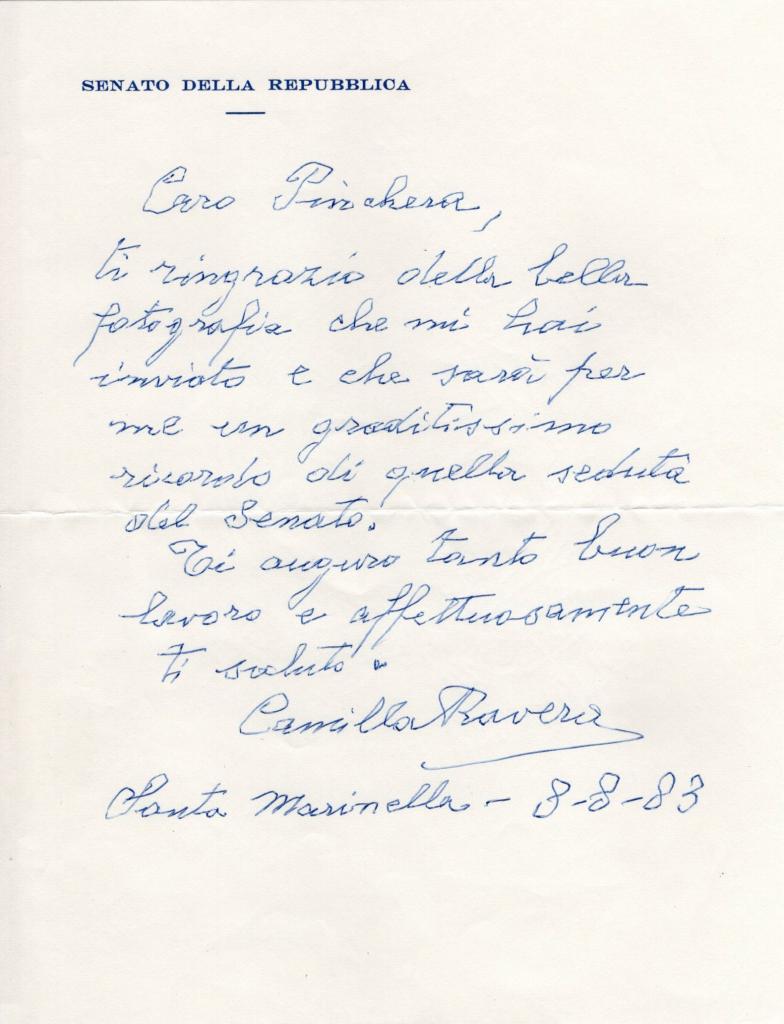 SENATO DELLA REPUBBLICA
Caro Pinchera,
ti ringrazio della bella
fotografia che mi hai
inviato e che sarà per
me un graditissimo
ricordo di quella seduta
del Senato.
Ti auguro tanto buon
lavoro e affettuosamente
ti saluto.
Camilla Ravera
Santa Marinella - 8-8-83